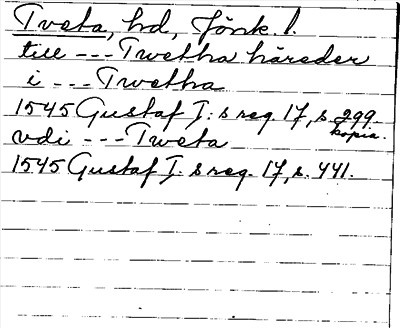 Tveta, hd, Jönk. l.
till --- Twetha häreder
i --- Twetha
1545 Gustaf I:s reg. 17, s. 299.
kopia.
vdi --- Tweta
1545 Gustaf I. s reg. 17, s. 441.